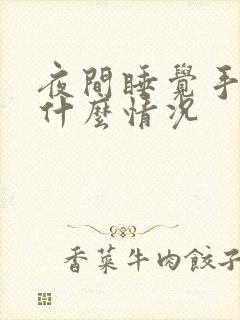 夜間睡覺手
什麼情況
香菜牛肉餃子